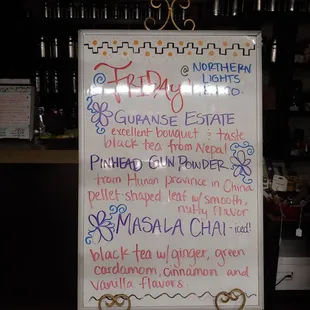 FRIDAY
@ NORTHERN
LIGHTS
GURANSE ESTATE
excellent bouquet & taste
black tea from Nepal
PINHEAD GUN POWDER
from Hunan province in China
pellet-shaped leaf w/ smooth,
nutty flavor
MASALA CHAI -iced!
black tea w/ginger, green
cardamom, cinnamon and
vanilla flavors